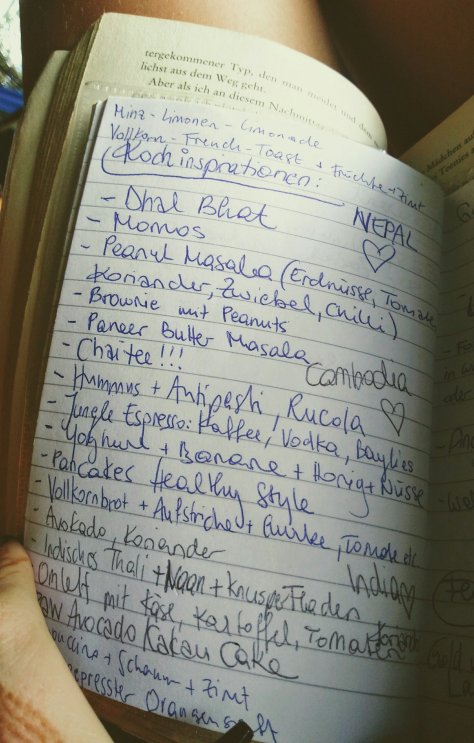 tergekommener Typ, den man meidet und dem
lichst aus dem Weg geht.
Aber als ich an diesem Nachmittag
Minz-Limonen-Limonade
Vollkorn-French-Toast + Früchte + Zimt
Kochinsprationen:
- Dhal Bhat
NEPAL
- Momos
- Peanut Masala (Erdnüsse, Tomate,
Koriander, Zwiebel, Chilli)
- Brownie mit Peanuts
- Paneer Butter Masala
- Chaitee!!!
Cambodia
- Hummus + Antipasti, Rucola
- Jungle Espresso: Kaffee, Vodka, Baylies
- Yoghurt + Banane + Honig + Nüsse
- Pancakes Healthy Style
- Vollkornbrot + Aufstriche + Gurke, Tomate etc.
- Avokado, Koriander
India
- Indisches Thali + Naan + Knusper Fladen
Omlett mit Käse, Kartoffel, Tomaten
Raw Avocado Kakau Cake
+ Schaum + Zimt
Orangensaft